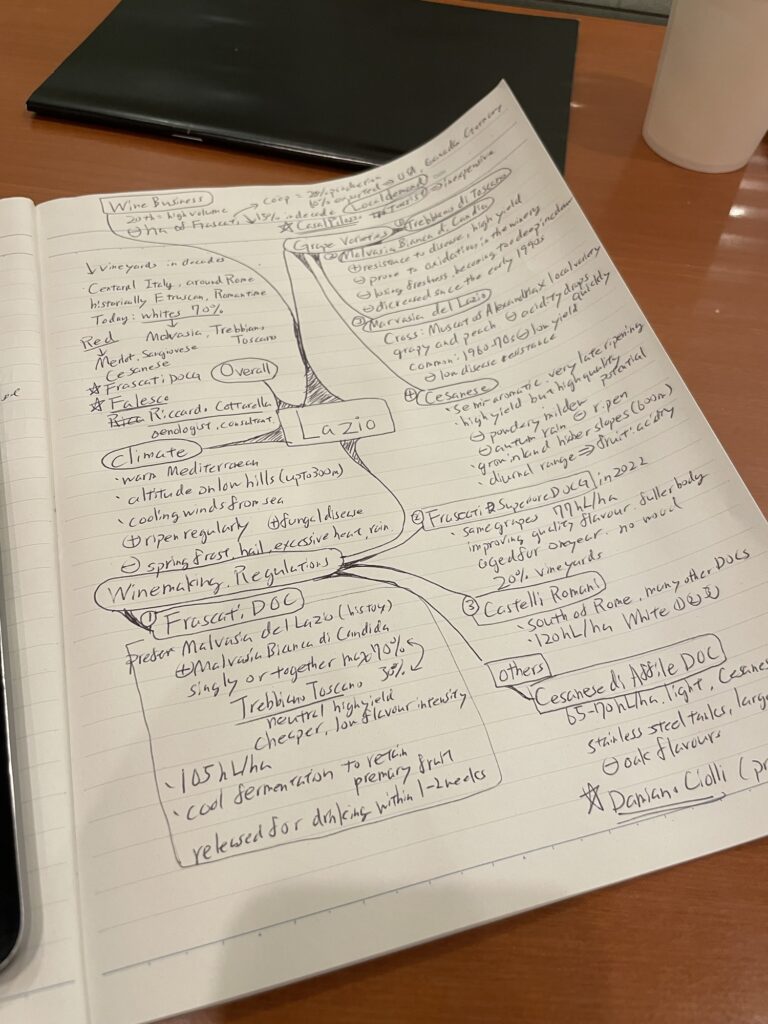 Wine Business
20th = high volume
⊖ ha of Frascati
Coop = 20% production
10% exported → USA, Canada, Germany
↓ 13% in decade
Local demand
☆ Casal Pilozzo
→ inexpensive
↓ Vineyards in decades
Centaral Italy, around Rome
historically Etruscan, Romantime
Today: whites 70%
Malvasia, Trebbiano Toscano
Red
Merlot, Sangiovese
Cesanese
☆ Frascati DOCG
☆ Falesco
Riccardo Cottarella
oenologist, consultant
Overall
Lazio
Climate
· warm Mediterranean
· altitude on low hills (up to 300m)
· cooling winds from sea
⊕ ripen regularly ⊕ fungal disease
⊖ spring frost, hail, excessive heat, rain
Grape Varieties
① Trebbiano di Toscano
② Malvasia Bianca di Candia
⊕ resistance to disease, high yield
⊖ prone to oxidation in the winery
⊖ losing freshness becoming too deep in color
⊖ dicreased since the early 1990s
③ Marvasia del Lazio
Cross: Muscat of Alexandria x local variety
grapy and peach ⊖ acidity drops quickly
common: 1960-70s ⊖ low yield
⊖ low disease resistance
④ Cesanese
· semi aromatic · very late ripening
· high yield but high quality potential
⊖ powdary mildew
⊖ autum rain ⊖ ripen
· grow inland higher slopes (600m)
· diurnal range ⇒ fruit: acidity
Winemaking. Regulations
① Frascati DOC
prefer Malvasia del Lazio (history)
⊕ Malvasia Bianca di Candida
singly or together max 70%
Trebbiano Toscano 30%
neutral high yield
cheaper, low flavour intensity
· 105 hL/ha
· cool fermentation to retain
premary fruit
released for drinking within 1-2 weeks
② Frascati Superiore DOCG in 2022
· same grapes 77hL/ha
improving quality flavour. fuller body
aged for one year no wood
20% vineyards
③ Castelli Romani
· south od Rome, many other DOCs
· 120hL/ha White
others
Cesanese di Affile DOC
65-70hL/ha. light, Cesanese
stainless steel tanks, large
⊖ oak flavours
☆ Damiano Ciolli